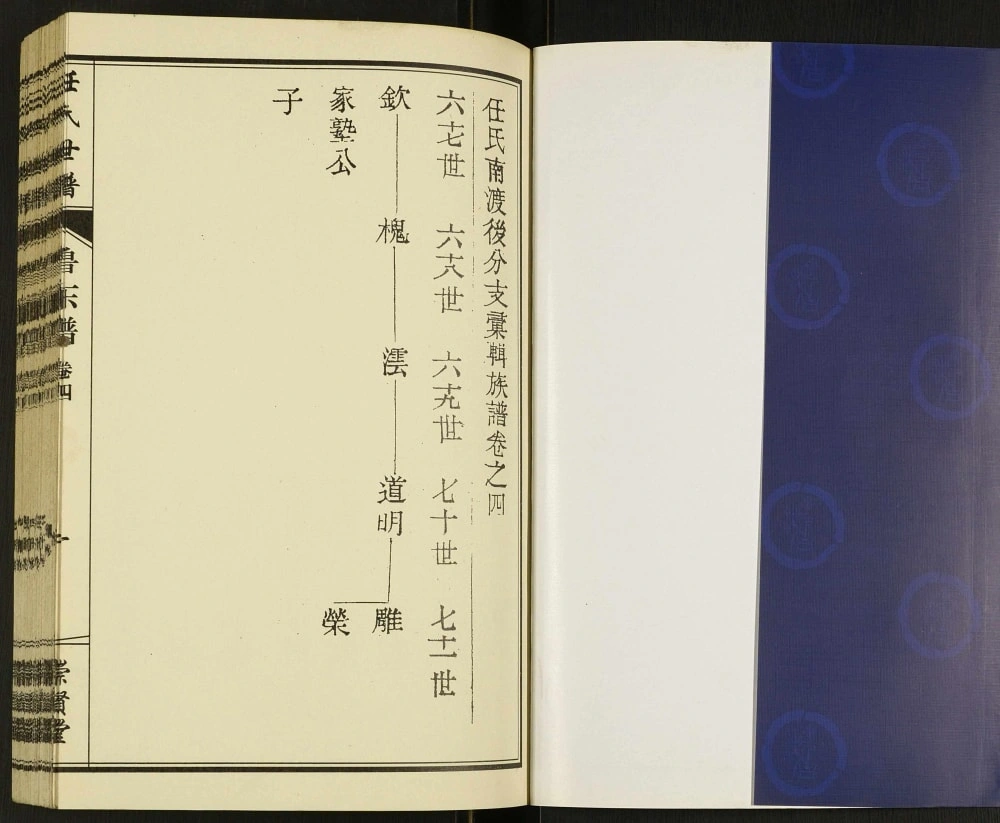 任氏南渡後分支彙輯族譜卷之四
六十七世 六十八世 六十九世 七十世 七十一世
欽 槐 澐 道明 雕
家塾公 榮
子
任氏世譜 魯东譜 卷四 一 崇賢堂